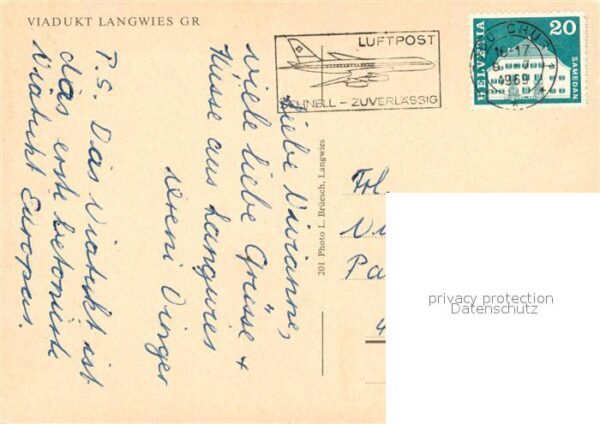 VIADUKT LANGWIES GR
LUFTPOST
SCHNELL – ZUVERLÄSSIG
16-17
1969
HELVETIA
20
SAMEDAN
Liebe Vivianne,
viele liebe Grüsse +
Küsse aus Langwies
Vreni Vinger
P.S. Das Viadukt ist
das erste betonierte
Viadukt Europas.
201 Photo L. Brüesch, Langwies
Frl.
Vi
Pa
4
privacy protection
Datenschutz